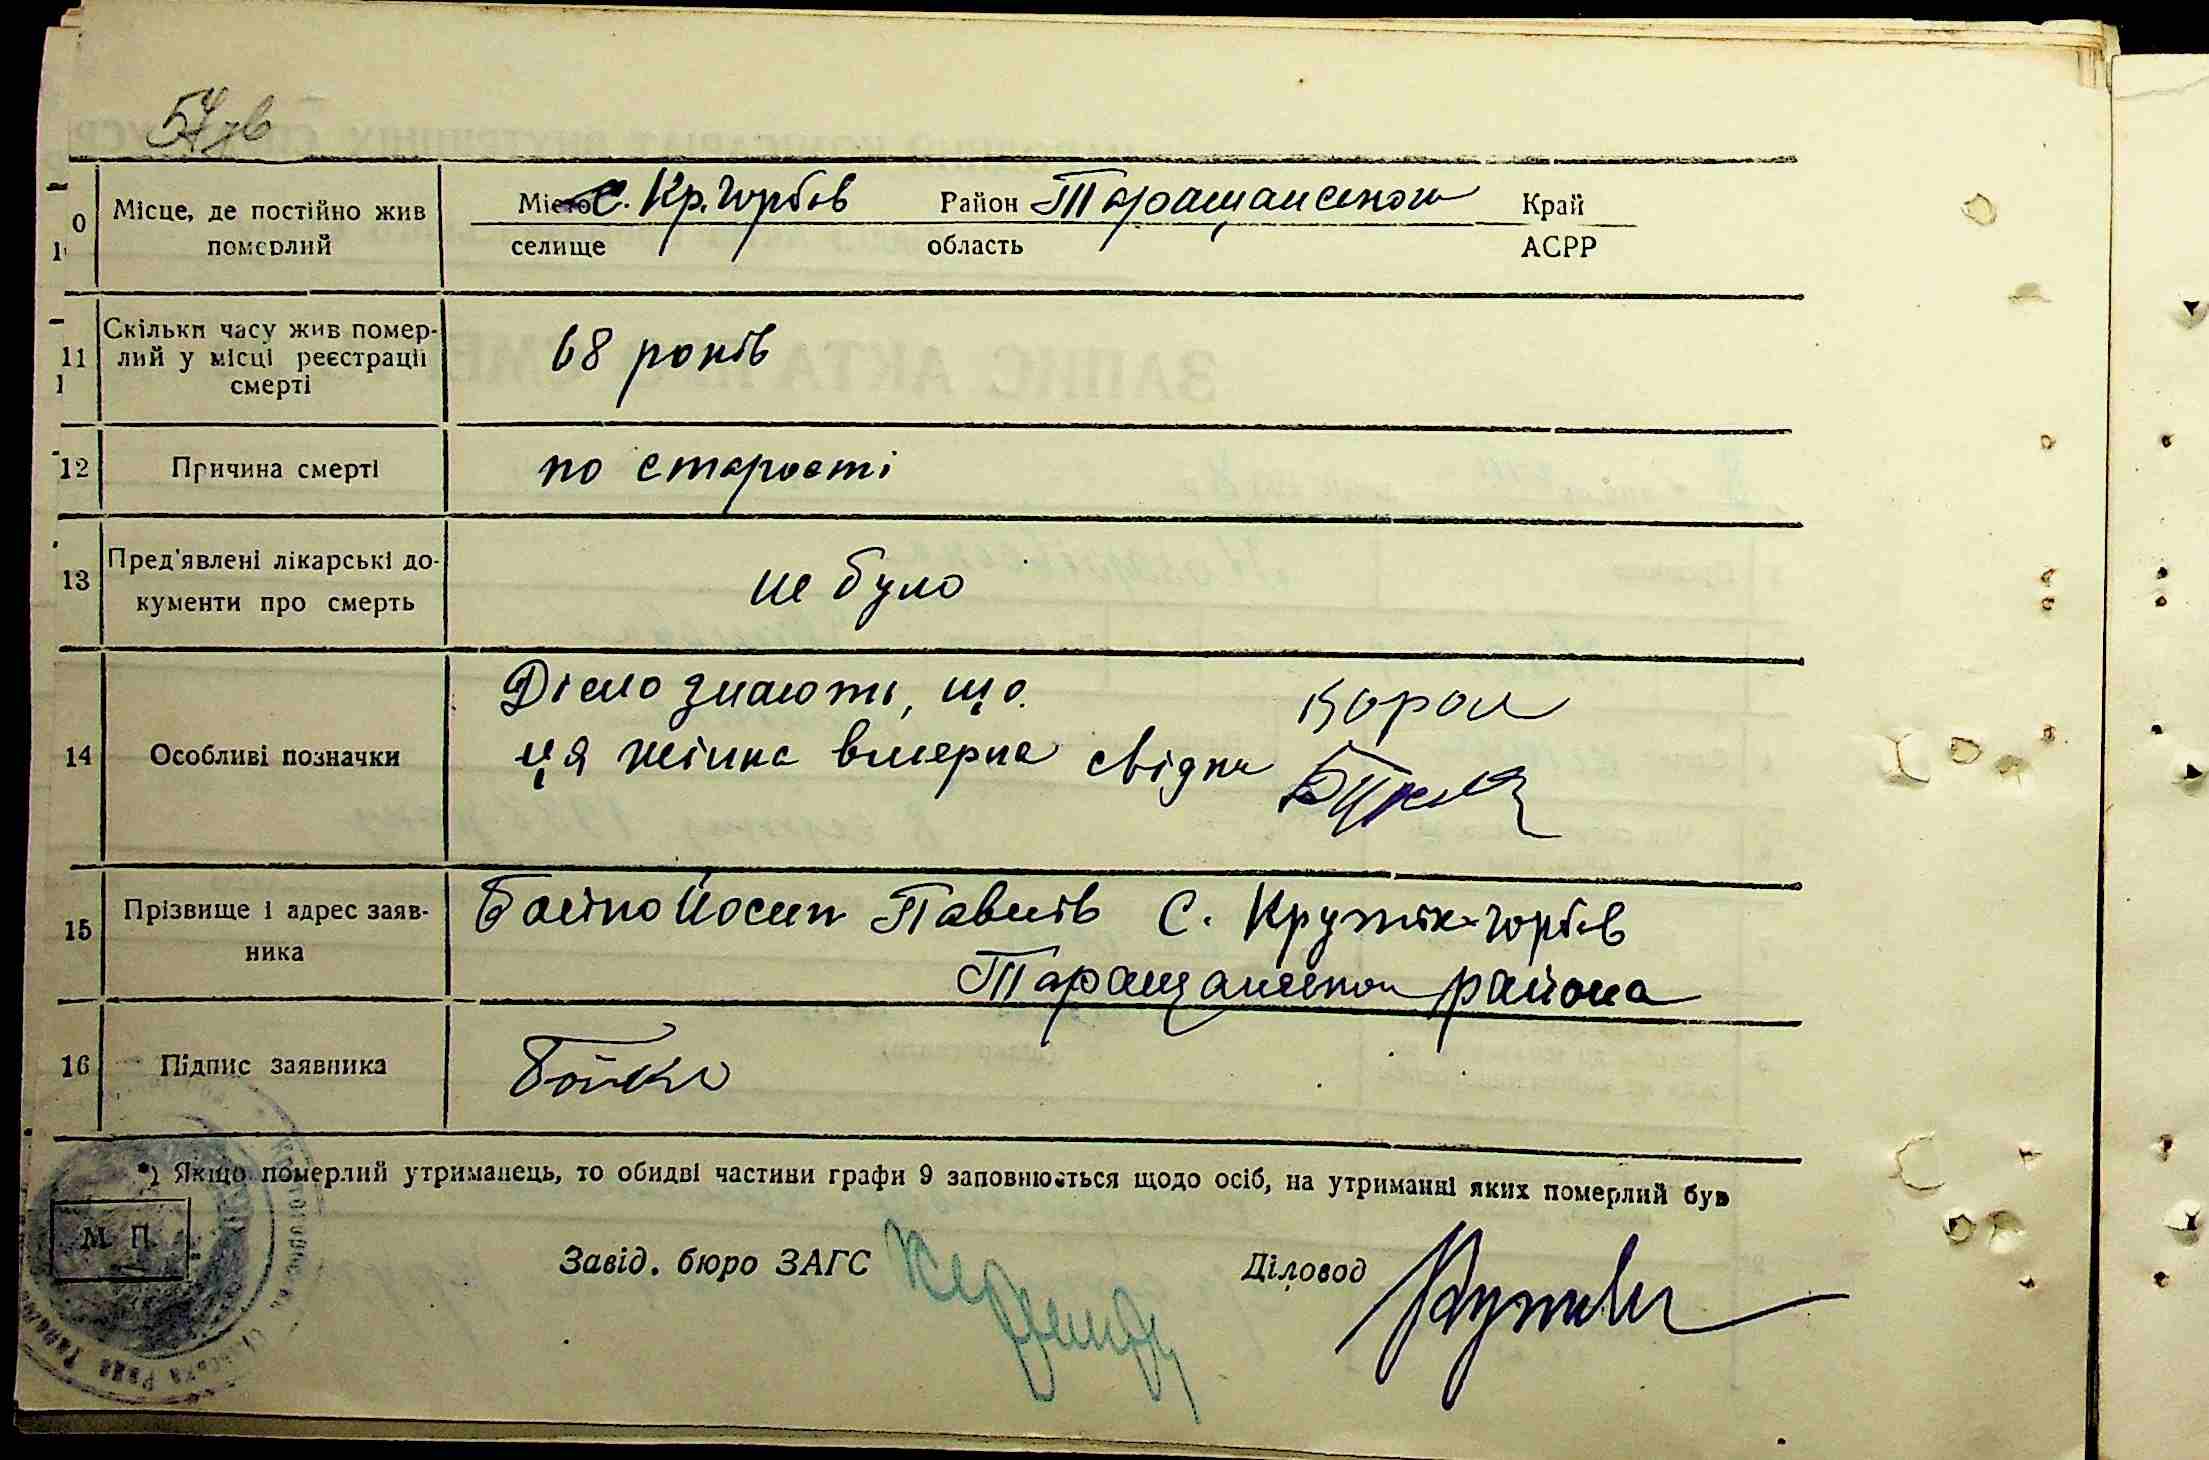 54 зв
10 Місце, де постійно жив померлий
Місто с. Кр. Горбів Район Таращанськог Край
селище область АСРР
11 Скільки часу жив померлий у місці реєстрації смерті
68 років
12 Причина смерті
по старості
13 Пред'явлені лікарські документи про смерть
не було
14 Особливі позначки
Дісно знають, що
ця жінка вмерла свідки
Корол
15 Прізвище і адрес заявника
Бойко Йосип Павлів С. Крутих-Горбів
Таращанськог района
16 Підпис заявника
Бойко
*) Якщо померлий утриманець, то обидві частини графи 9 заповнюється щодо осіб, на утриманні яких померлий був
М. П.
Завід. бюро ЗАГС
Діловод